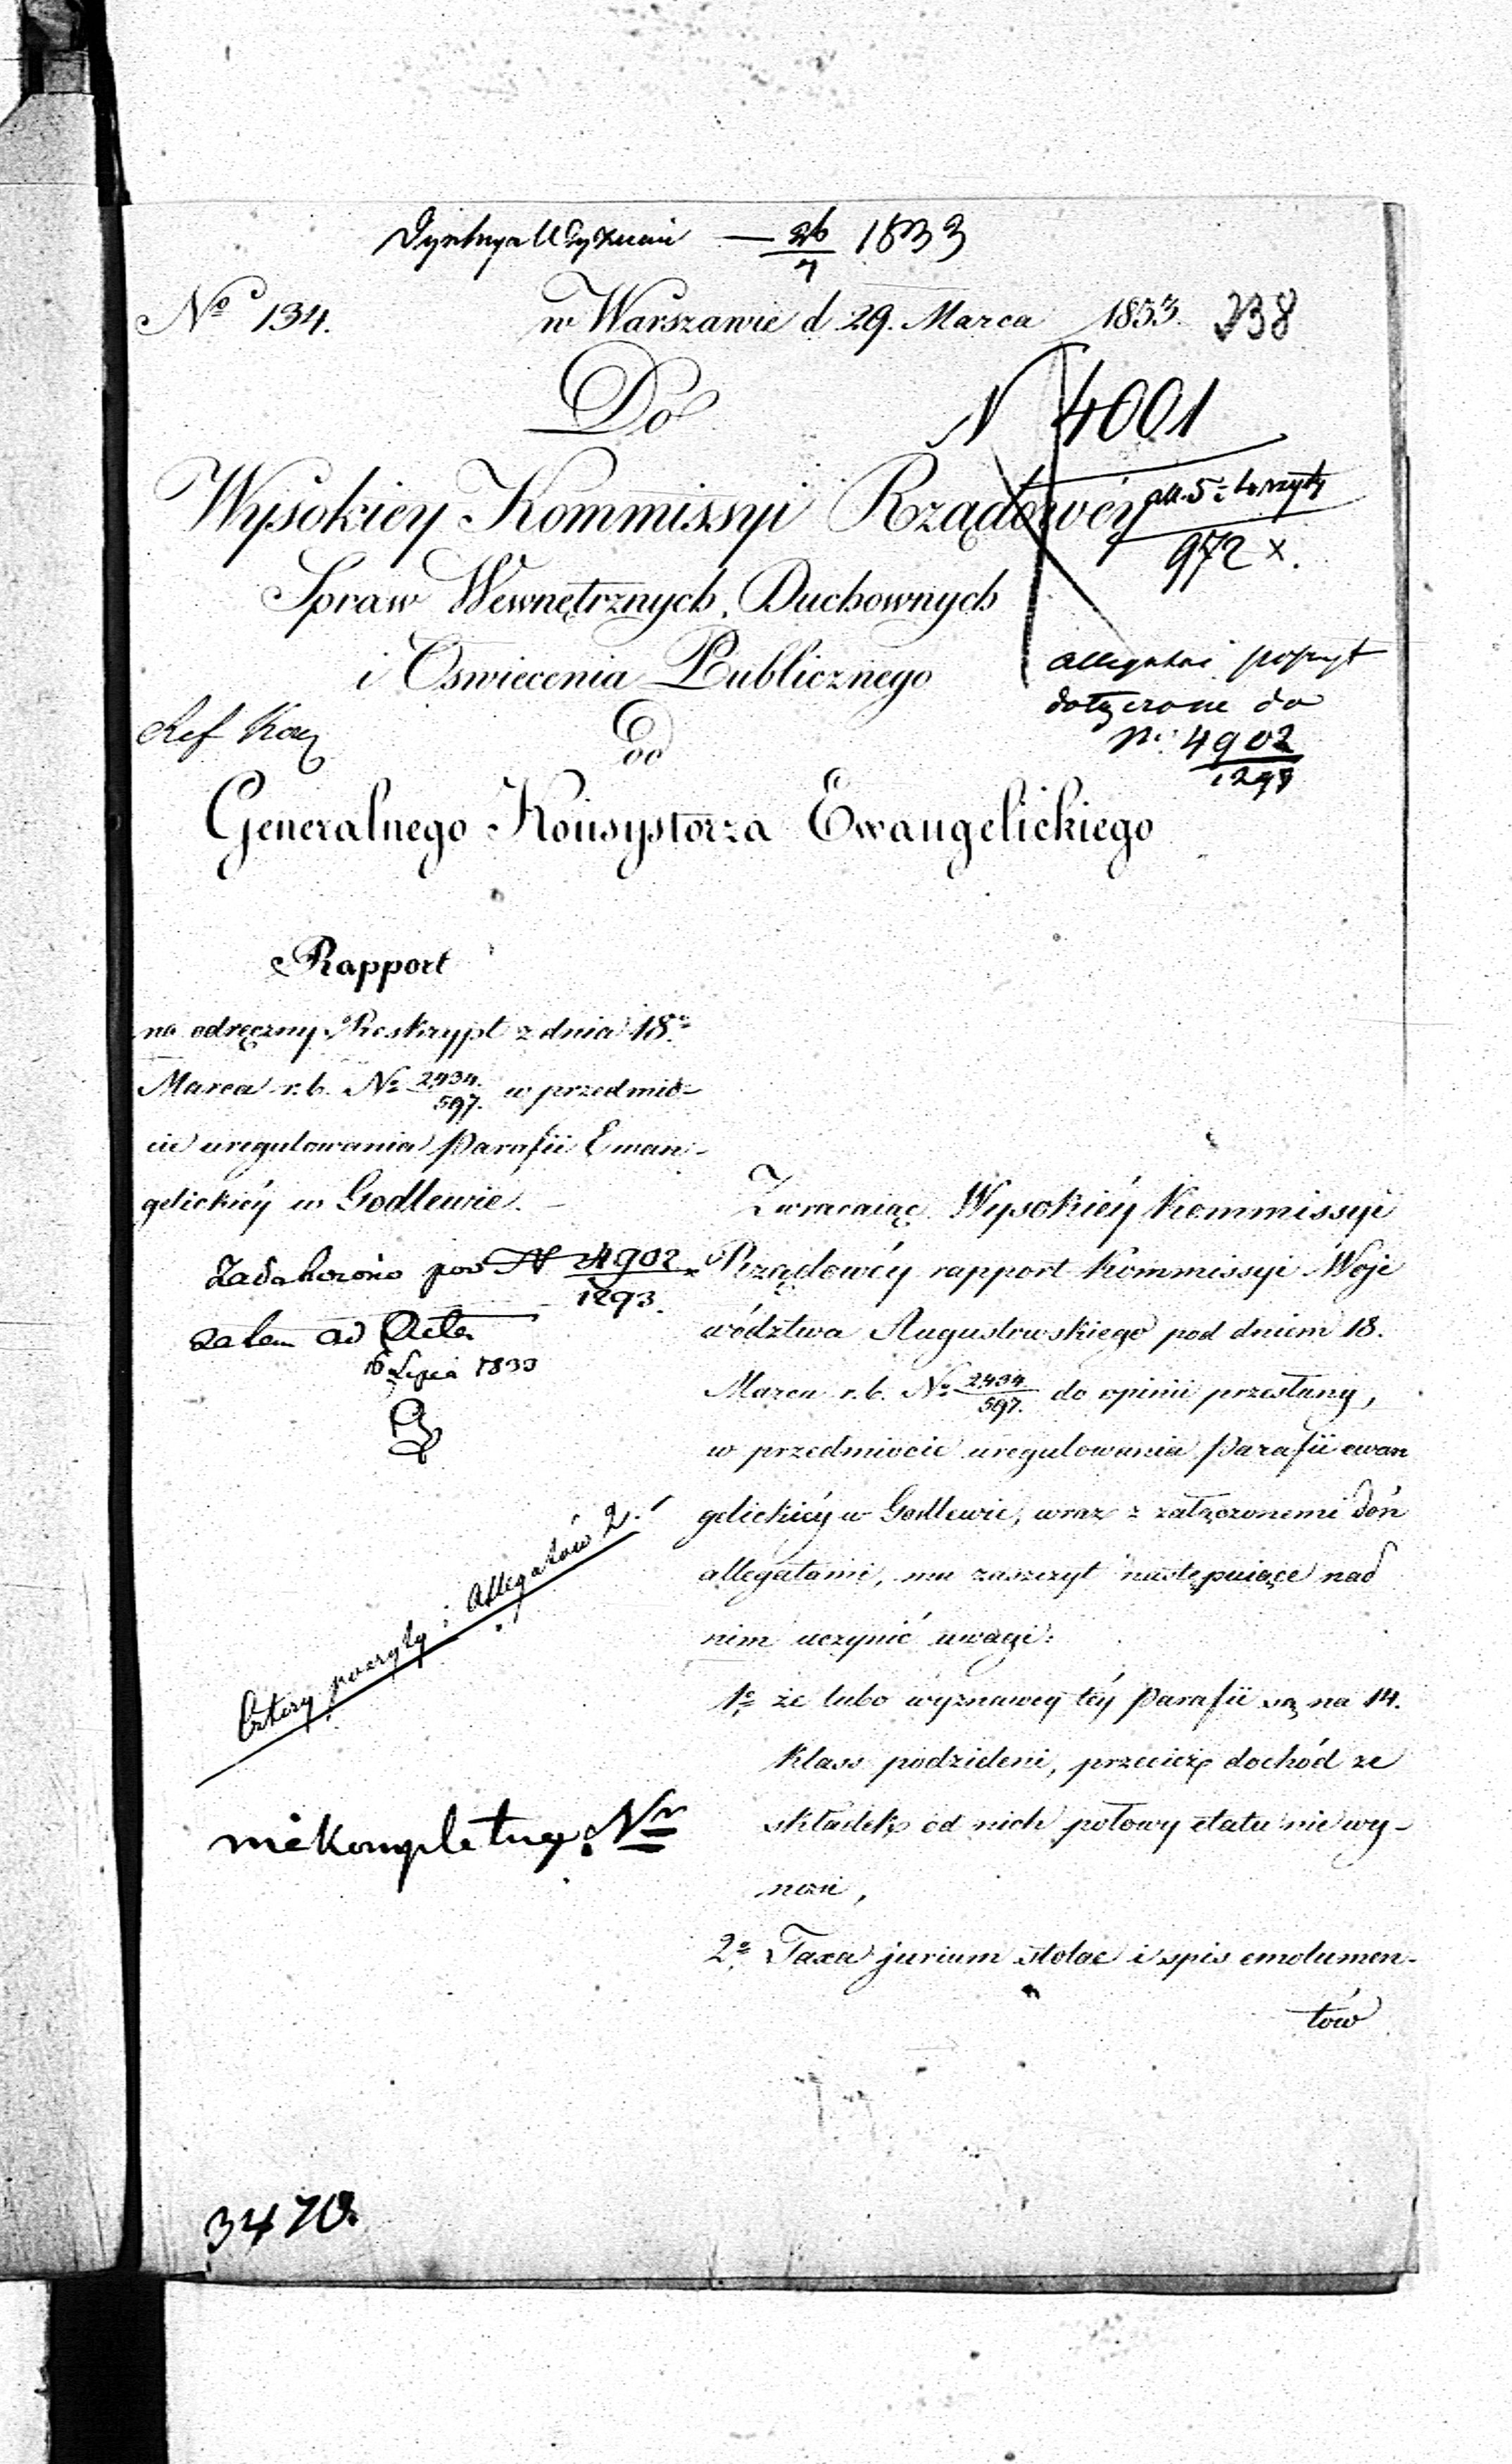 Dyrekcya Wyznań — 26/7 1833
No 134.
w Warszawie d 29. Marca 1833.
238
Do
N 4001
Wysokiey Kommissyi Rządowéy
972 x.
Spraw Wewnętrznych, Duchownych
i Oswiecenia Publicznego
allegata i poszyt
dołączone do
N: 4902/1293
Ref
Od
Generalnego Konsystorza Ewangelickiego
Rapport
na odręczny Reskrypt z dnia 18o
Marca r.b. No 2434./597. w przedmio-
cie uregulowania Parafii Ewan-
gelickiéy w Godlewie. —
Zadekretowano pod N 4902/1293.
zatem ad Acta
16 Lipca 1833
Cztery poszyty i Allegatów 2.
niekompletny Nr
Zwracaiąc Wysokiéy Kommissyi
Rządowéy rapport Kommissyi Woje
wództwa Augustowskiego pod dniem 18.
Marca r.b. No 2434./597. do opinii przesłany,
w przedmiocie uregulowania Parafii ewan
gelickiéy w Godlewie, wraz z załączonemi doń
allegatami, ma zaszczyt nastepuiące nad
nim uczynić uwagi:
1o że lubo wyznawcy téy Parafii są na 14.
klass podzieleni, przecież dochód ze
składek od nich połowy etatu nie wy-
nosi,
2o Taxa jurium stolae i spis emolumen-
tów
3470.